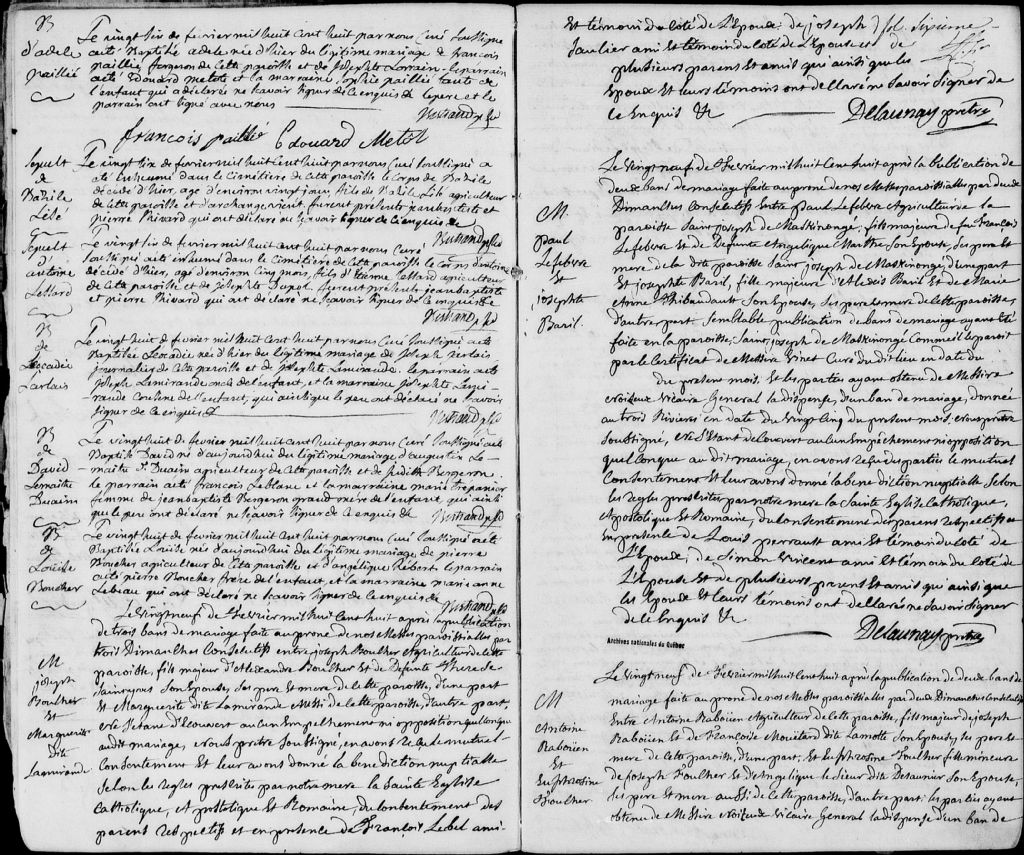 B
d'adele
paillié
Le vingt six de fevrier mil huit cent huit par nous Curé soussigné
a eté Baptisé adele née d'hier du legitime mariage de francois
paillié forgeron de Cette paroisse et de josephte Lorrain le parrain
a eté Edouard Metot et la marraine sophie paillié tante de
l'enfant qui a declaré ne scavoir signer de ce enquis & le pere et le
parrain ont signé avec nous
francois paillié Edouard Metot
Sepult
de
Bazile
Lésé
Le vingt six de fevrier mil huit cent huit par nous Curé soussigné a
eté inhumé dans le Cimétiére de Cette paroisse le Corps de Bazile
décédé d'hier, agé d'environ vingt jours, fils de Bazile Lésé agriculteur
de Cette paroisse et d'archange vient. furent présents jeanbaptiste et
pierre Rivard qui ont déclaré ne scavoir signer de Ce enquis &
Sepult
d'
antoine
Lettard
Le vingt six de fevrier mil huit cent huit par nous Curé
soussigné a eté inhumé dans le Cimétiére de Cette paroisse le Corps d'antoine
décédé d'hier, agé d'environ Cinq mois, fils d'Etienne Lettard agriculteur
de Cette paroisse et de Josephte Dupol. furent présents jeanbaptiste
et pierre Rivard qui ont déclaré ne scavoir signer de Ce enquis &
B
de
Leocadie
Le vingt huit de fevrier mil huit cent huit par nous Curé soussigné a eté
Baptisée Leocadie née d'hier du légitime mariage de Joseph
journalier de Cette paroisse et de Josephte Lemirande. le parrain a eté
Joseph Lemirande oncle de l'enfant, et la marraine Josephte Lemi-
rande Cousine de l'enfant, qui ainsi que le pere ont déclaré ne scavoir
signer de Ce enquis &
B
de
David
Lemaitre
Duaim
Le vingt huit de fevrier mil huit cent huit par nous Curé soussigné a eté
Baptisé David né d'aujourd'hui du légitime mariage d'augustin Le-
maitre dt Duaim agriculteur de Cette paroisse et de Judith Bergeron
le parrain a eté francois Leblanc et la marraine marie trepanier
femme de jeanbaptiste Bergeron grand mére de l'enfant, qui ainsi
que le pere ont déclaré ne scavoir signer de Ce enquis &
B
de
Louise
Boucher
Le vingt huit de fevrier mil huit cent huit par nous Curé soussigné a eté
Baptisée Louise née d'aujourd'hui du légitime mariage de pierre
Boucher agriculteur de Cette paroisse et d'angelique Robert le parrain
a eté pierre Boucher frére de l'enfant, et la marraine marie anne
Lebeau qui ont déclaré ne scavoir signer de Ce enquis &
M
joseph
Boulher
Et
Marguerite
Dite
Lamirande
Le vingt neuf de Fevrier mil huit Cent huit après la publication
de trois bans de mariage faite au prone de nos Messes paroissialles par
trois Dimanches Consecutifs entre joseph Boulher Agriculteur de cette
paroisse, fils majeur d'Alexandre Boulher et de Defunte Therese
Son Epouse, ses pere et mere de Cette paroisse, d'une part
Et Marguerite dite Lamirande aussi de Cette paroisse, d'autre part,
et ne s'etant d'Couvert aucun Empêchement ni opposition quelconque
audit mariage, Nous prêtre Soussigné, en avons reçu le mutuel
Consentement et leur avons donné la benediction nuptialle
Selon les regles prescrites par notre mere la Sainte Eglise
Catholique, Apostolique et Romaine, du Consentement des
parens respectifs et en presence de François Lebel ami
Et témoin du coté de l'Epoux, de joseph
Gaulier ami et témoin du coté de l'Epouse et de
plusieurs parens et amis qui ainsi que les
Epoux et leurs témoins ont déclaré ne Savoir Signer de
ce Enquis &c
Delaunay prêtre
fol. Sixieme
M.
paul
Lefebvre
Et
josephte
Baril.
Le vingt neuf de Fevrier mil huit Cent huit après la publication de
deux bans de mariage faite au prone de nos Messes paroissialles par deux
Dimanches Consecutifs Entre paul Lefebvre Agriculteur de la
paroisse Saint joseph de Maskinongé, fils majeur de feu François
Lefebvre Et de Defunte Angelique Marthe Son Epouse, ses pere et
mere de la dite paroisse Saint joseph de Maskinongé, d'une part
Et josephte Baril, fille majeure d'Alexis Baril Et de Marie
Anne Thibaudault Son Epouse, ses pere et mere de Cette paroisse,
d'autre part. Semblable publication de bans de mariage ayant été
faite en la paroisse, Saint joseph de Maskinongé Comme il apparoit
par le Certificat de Messire Vinet Curé du dit lieu en date du
Du present mois, Et les parties ayant obtenu de Messire
Noiseux Vicaire General la dispense, d'un ban de mariage, donnée
aux trois Rivieres en date du vingt Cinq du present mois, Nous prêtre
Soussigné, Ne s'Etant deCouvert aucun Empêchement ni opposition
quelconque au dit mariage, en avons reçu des parties le mutuel
Consentement Et leur avons donné la benediction nuptialle Selon
les regles prescrites par notre mere la Sainte Eglise Catholique,
Apostolique Et Romaine, du Consentement des parens respectifs
en presence de Louis perrault ami Et témoin du coté de
l'Epoux, de Simon Vincent ami Et témoin du coté de
l'Epouse Et de plusieurs parens Et amis qui ainsi que
les Epoux et leurs témoins ont déclarés ne Savoir Signer
de ce Enquis &c
Delaunay prêtre
Archives nationales du Québec
M
Antoine
Rabouin
Et
Euphrosine
Foulher
Le vingt neuf de Fevrier mil huit Cent huit après la publication de deux bans de
mariage faite au prone de nos Messes paroissialles par deux Dimanches Consecutifs
Entre Antoine Rabouin Agriculteur de Cette paroisse, fils majeur de joseph
Rabouin Et de Françoise Son Epouse, ses pere et
mere de Cette paroisse, d'une part, Et Euphrosine Foulher fille mineure
de joseph Foulher Et d'Angelique Son Epouse,
ses pere et mere aussi de Cette paroisse, d'autre part: les parties ayant
obtenu de Messire Noiseux Vicaire General la dispense d'un ban de